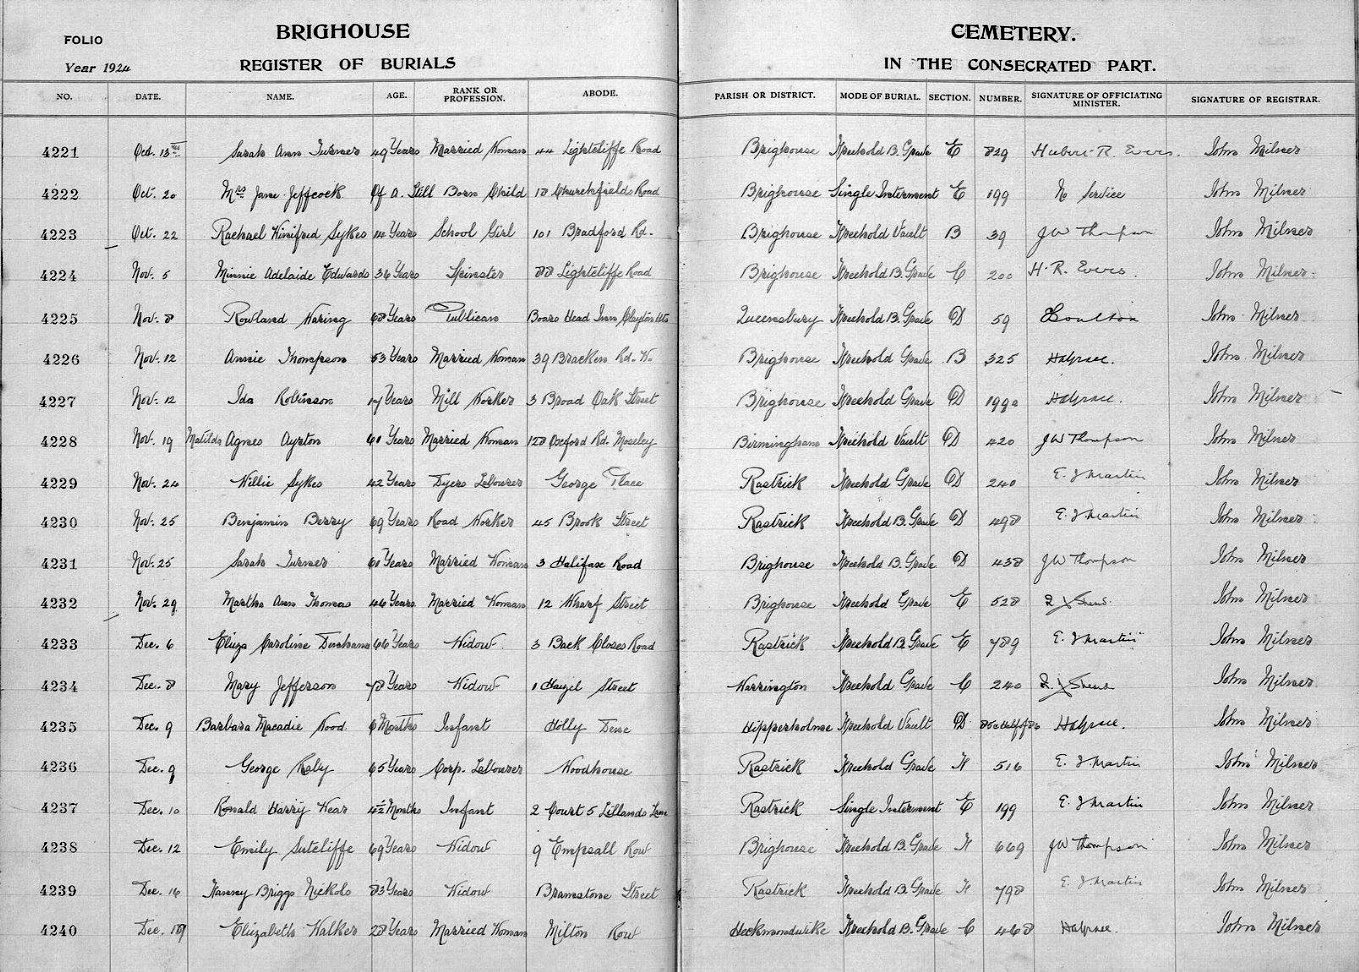 BRIGHOUSE CEMETERY.
FOLIO
Year 1924
REGISTER OF BURIALS IN THE CONSECRATED PART.
NO. DATE. NAME. AGE. RANK OR PROFESSION. ABODE. PARISH OR DISTRICT. MODE OF BURIAL. SECTION. NUMBER. SIGNATURE OF OFFICIATING MINISTER. SIGNATURE OF REGISTRAR.
4221 Oct. Sarah Ann Turner 49 Years Married Woman 44 Lightcliffe Road Brighouse Freehold B. Grave E 829 Hubert R. Evers. John Milner
4222 Oct. 20 Mrs Jane Jeffcock Of a Still Born Child 18 Churchfields Road Brighouse Single Interment E 199 No Service John Milner
4223 Oct. 22 Rachael Winifred Sykes 14 Years School Girl 101 Bradford Rd. Brighouse Freehold Vault B 39 J W Thompson John Milner
4224 Nov. 5 Minnie Adelaide Edwards 36 Years Spinster 88 Lightcliffe Road Brighouse Freehold B. Grave C 200 H. R. Evers. John Milner
4225 Nov. 8 Rowland Waring 68 Years Publican Boars Head Inn Clayton Hts Queensbury Freehold B. Grave D 59 John Milner
4226 Nov. 12 Annie Thompson 53 Years Married Woman 39 Bracken Rd. Brighouse Freehold Grave B 325 John Milner
4227 Nov. 12 Ida Robinson 17 Years Mill Worker 3 Broad Oak Street Brighouse Freehold Grave D John Milner
4228 Nov. 19 Matilda Agnes Ayrton 61 Years Married Woman 128 Oxford Rd. Moseley Birmingham Freehold Vault D 420 J W Thompson John Milner
4229 Nov. 24 Willie Sykes 42 Years Dyers Labourer George Place Rastrick Freehold Grave D 240 E. J Martin John Milner
4230 Nov. 25 Benjamin Berry 69 Years Road Worker 45 Brook Street Rastrick Freehold B. Grave D 498 E. J Martin John Milner
4231 Nov. 25 Sarah Turner 61 Years Married Woman 3 Halifax Road Brighouse Freehold B. Grave D 438 J W Thompson John Milner
4232 Nov. 29 Martha Ann Thomas 46 Years Married Woman 12 Wharf Street Brighouse Freehold Grave E 528 John Milner
4233 Dec. 6 Eliza Caroline Denham 66 Years Widow 3 Back Closes Road Rastrick Freehold B. Grave E 789 E. J Martin John Milner
4234 Dec. 8 Mary Jefferson 78 Years Widow 1 Hazel Street Warrington Freehold Grave C 240 John Milner
4235 Dec. 9 Barbara Macadie Wood 6 Months Infant Holly Dene Hipperholme Freehold Vault D John Milner
4236 Dec. 9 George Raby 65 Years Corp. Labourer Woodhouse Rastrick Freehold Grave 516 E. J Martin John Milner
4237 Dec. 10 Ronald Harry Wear Months Infant 2 Court 5 Lillands Lane Rastrick Single Interment E 199 E. J Martin John Milner
4238 Dec. 12 Emily Sutcliffe 69 Years Widow 9 Empsall Row Brighouse Freehold B. Grave 669 J W Thompson John Milner
4239 Dec. 16 Nanny Briggs Nickols 83 Years Widow Bramstone Street Rastrick Freehold B. Grave 798 E. J Martin John Milner
4240 Dec. Elizabeth Walker 28 Years Married Woman Milton Row Heckmondwike Freehold B. Grave C 468 John Milner